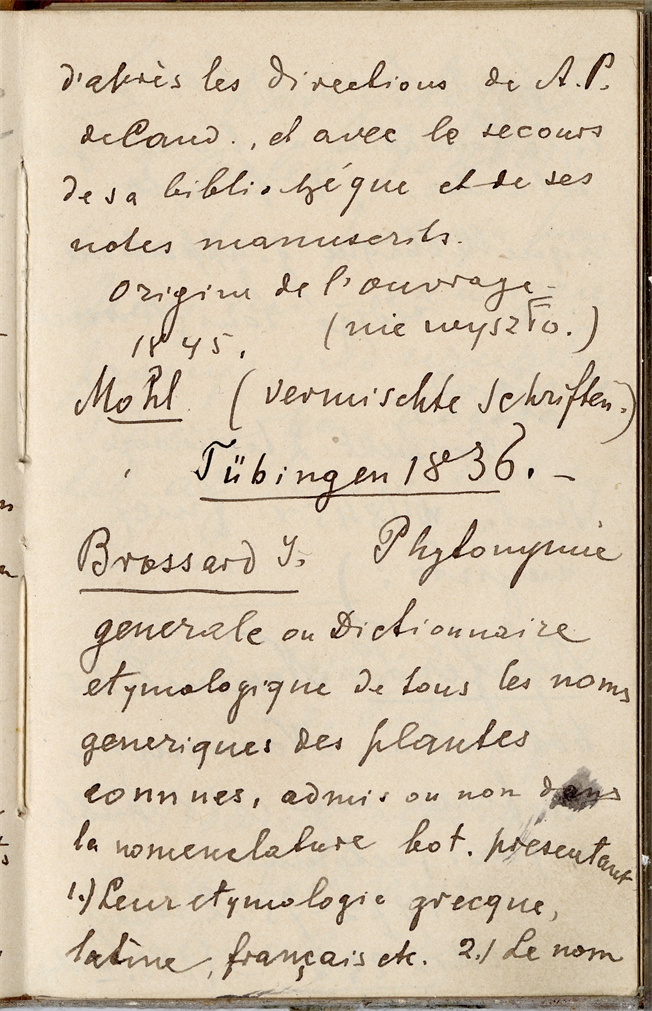 d'après les directions de A. P.
deCand., et avec le secours
de sa bibliothéque et de ses
notes manuscrits.
Origine de l'ouvrage
1845. (nie wyszło.)
Mohl (vermischte Schriften.)
Tübingen 1836. –
Brossard J. Phytonymie
generale ou Dictionnaire
etymologique de tous les noms
generiques des plantes
connues, admis ou non dans
la nomenclature bot. presentant
1.) Leur etymologie grecque,
latine, français etc. 2.) Le nom